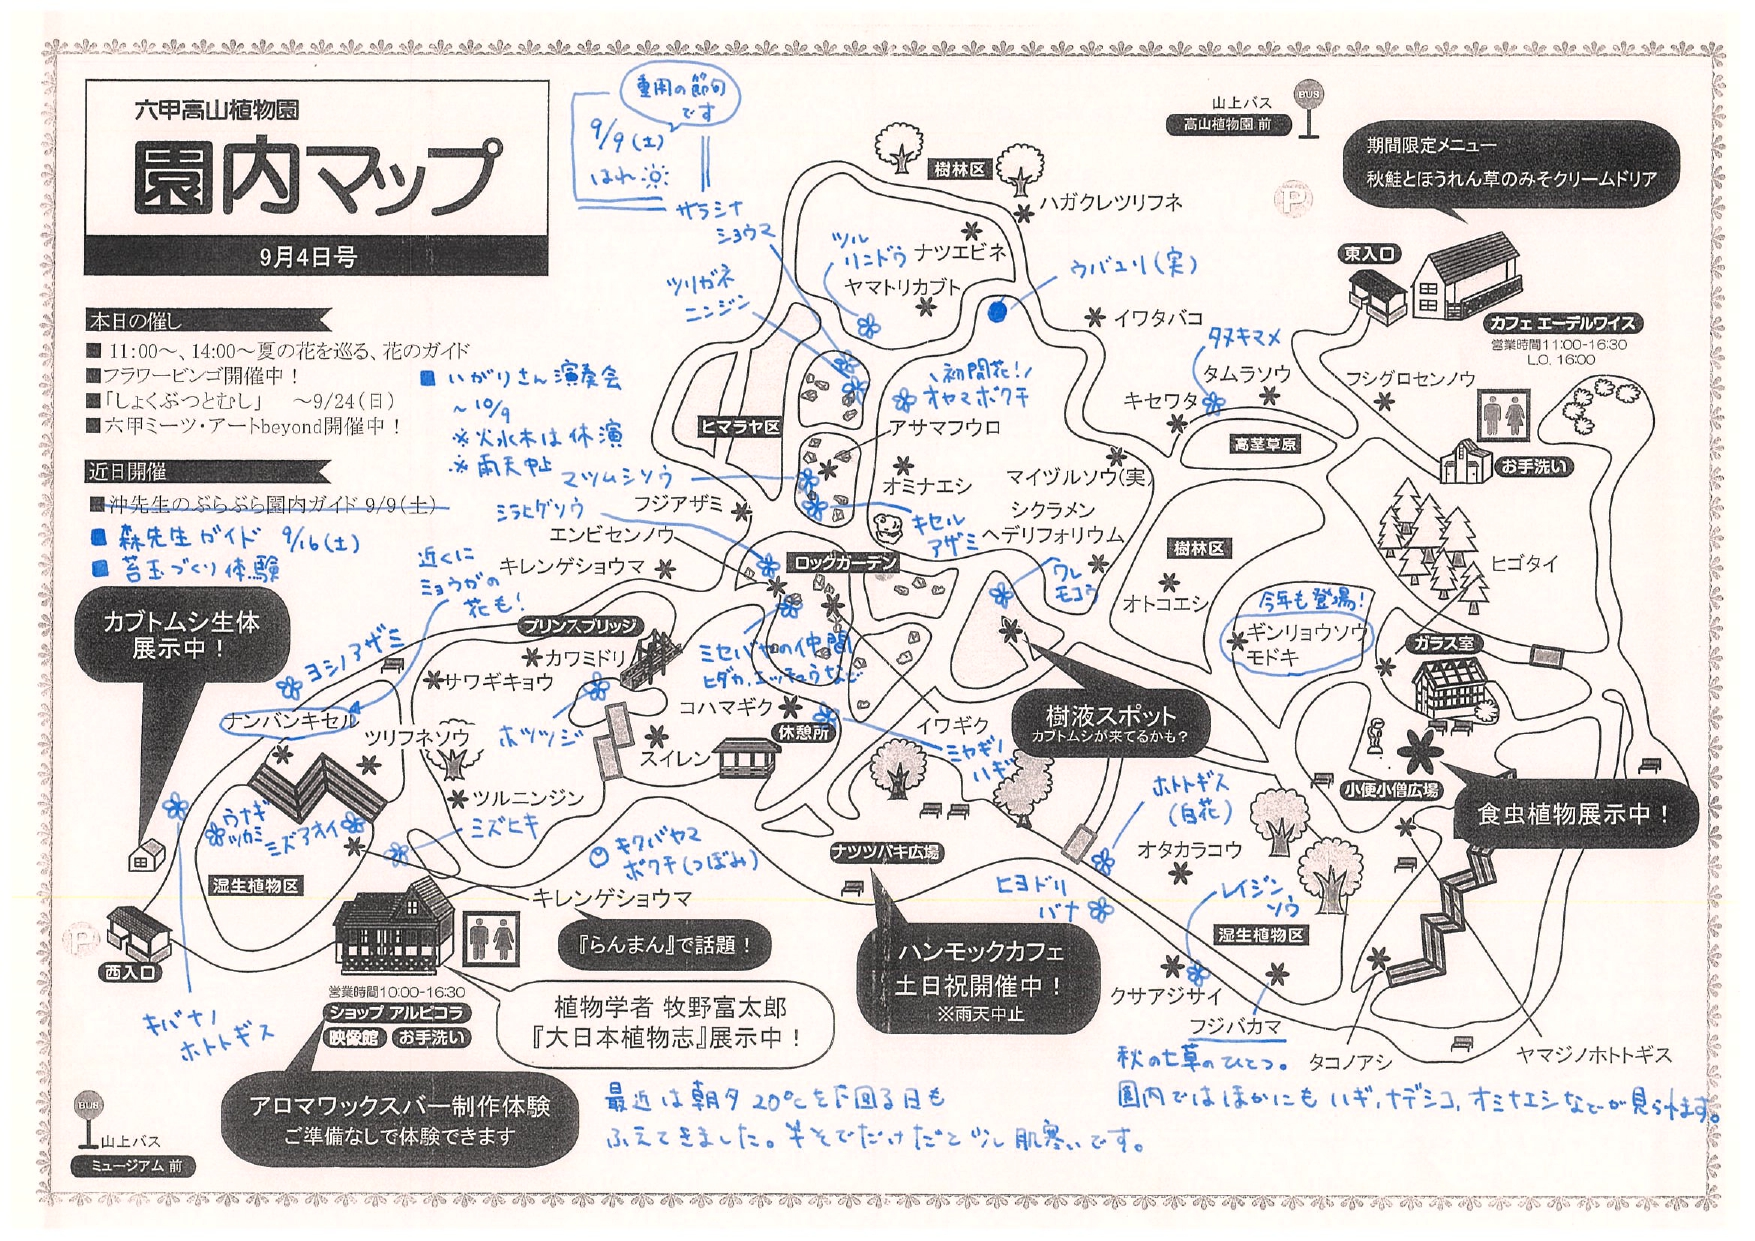 六甲高山植物園
園内マップ
9月4日号
重陽の節句
です
9/9(土)
はれ
本日の催し
■ 11:00～、14:00～夏の花を巡る、花のガイド
■フラワービンゴ開催中！
■「しょくぶつとむし」　～9/24(日)
■六甲ミーツ・アートbeyond開催中！
■ いがりさん演奏会
～10/9
※火水木は休演
※雨天中止
近日開催
■沖先生のぶらぶら園内ガイド 9/9(土)
■ 森先生ガイド 9/16(土)
■ 苔玉づくり体験
山上バス
高山植物園 前
BUS
P
期間限定メニュー
秋鮭とほうれん草のみそクリームドリア
東入口
カフェ エーデルワイス
営業時間11:00-16:30
L.O. 16:00
樹林区
ハガクレツリフネ
サラシナ
ショウマ
ツル
リンドウ
ナツエビネ
ヤマトリカブト
ウバユリ(実)
ツリガネ
ニンジン
イワタバコ
タヌキマメ
タムラソウ
キセワタ
フシグロセンノウ
お手洗い
高茎草原
初開花！
オヤマボクチ
ヒマラヤ区
アサマフウロ
マツムシソウ
オミナエシ
マイヅルソウ(実)
シクラメン
ヘデリフォリウム
キセル
アザミ
ミラヒゲソウ
フジアザミ
エンビセンノウ
キレンゲショウマ
ロックガーデン
ワレ
モコウ
樹林区
オトコエシ
ヒゴタイ
今年も登場！
ギンリョウソウ
モドキ
ガラス室
近くに
ミョウガの
花も！
カブトムシ生体
展示中！
プリンスブリッジ
カワミドリ
サワギキョウ
ヨシノアザミ
ナンバンキセル
ツリフネソウ
ミセバヤの仲間
ヒダカ、エッチュウなど
コハマギク
休憩所
ホツツジ
スイレン
イワギク
ミヤギノ
ハギ
樹液スポット
カブトムシが来てるかも？
小便小僧広場
食虫植物展示中！
ツルニンジン
ミズヒキ
ウナギ
ツカミ
ミズアオイ
湿生植物区
キクバヤマ
ボクチ(つぼみ)
ナツツバキ広場
ホトトギス
(白花)
オタカラコウ
ヒヨドリ
バナ
レイジン
ソウ
湿生植物区
キレンゲショウマ
『らんまん』で話題！
P
西入口
営業時間10:00-16:30
ショップ アルピコラ
映像館
お手洗い
植物学者 牧野富太郎
『大日本植物志』展示中！
ハンモックカフェ
土日祝開催中！
※雨天中止
クサアジサイ
フジバカマ
タコノアシ
ヤマジノホトトギス
キバナノ
ホトトギス
秋の七草のひとつ。
園内ではほかにも ハギ、ナデシコ、オミナエシなどが見られます。
BUS
山上バス
ミュージアム 前
アロマワックスバー制作体験
ご準備なしで体験できます
最近は朝夕20℃を下回る日も
ふえてきました。半そでだけだと少し肌寒いです。